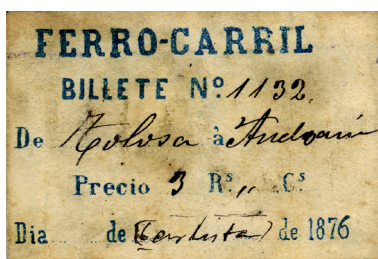 FERRO-CARRIL
BILLETE Nº 1132.
De Tolosa à Andoain
Precio 3 Rˢ,, Cˢ
Dia de (Carlista) de 1876